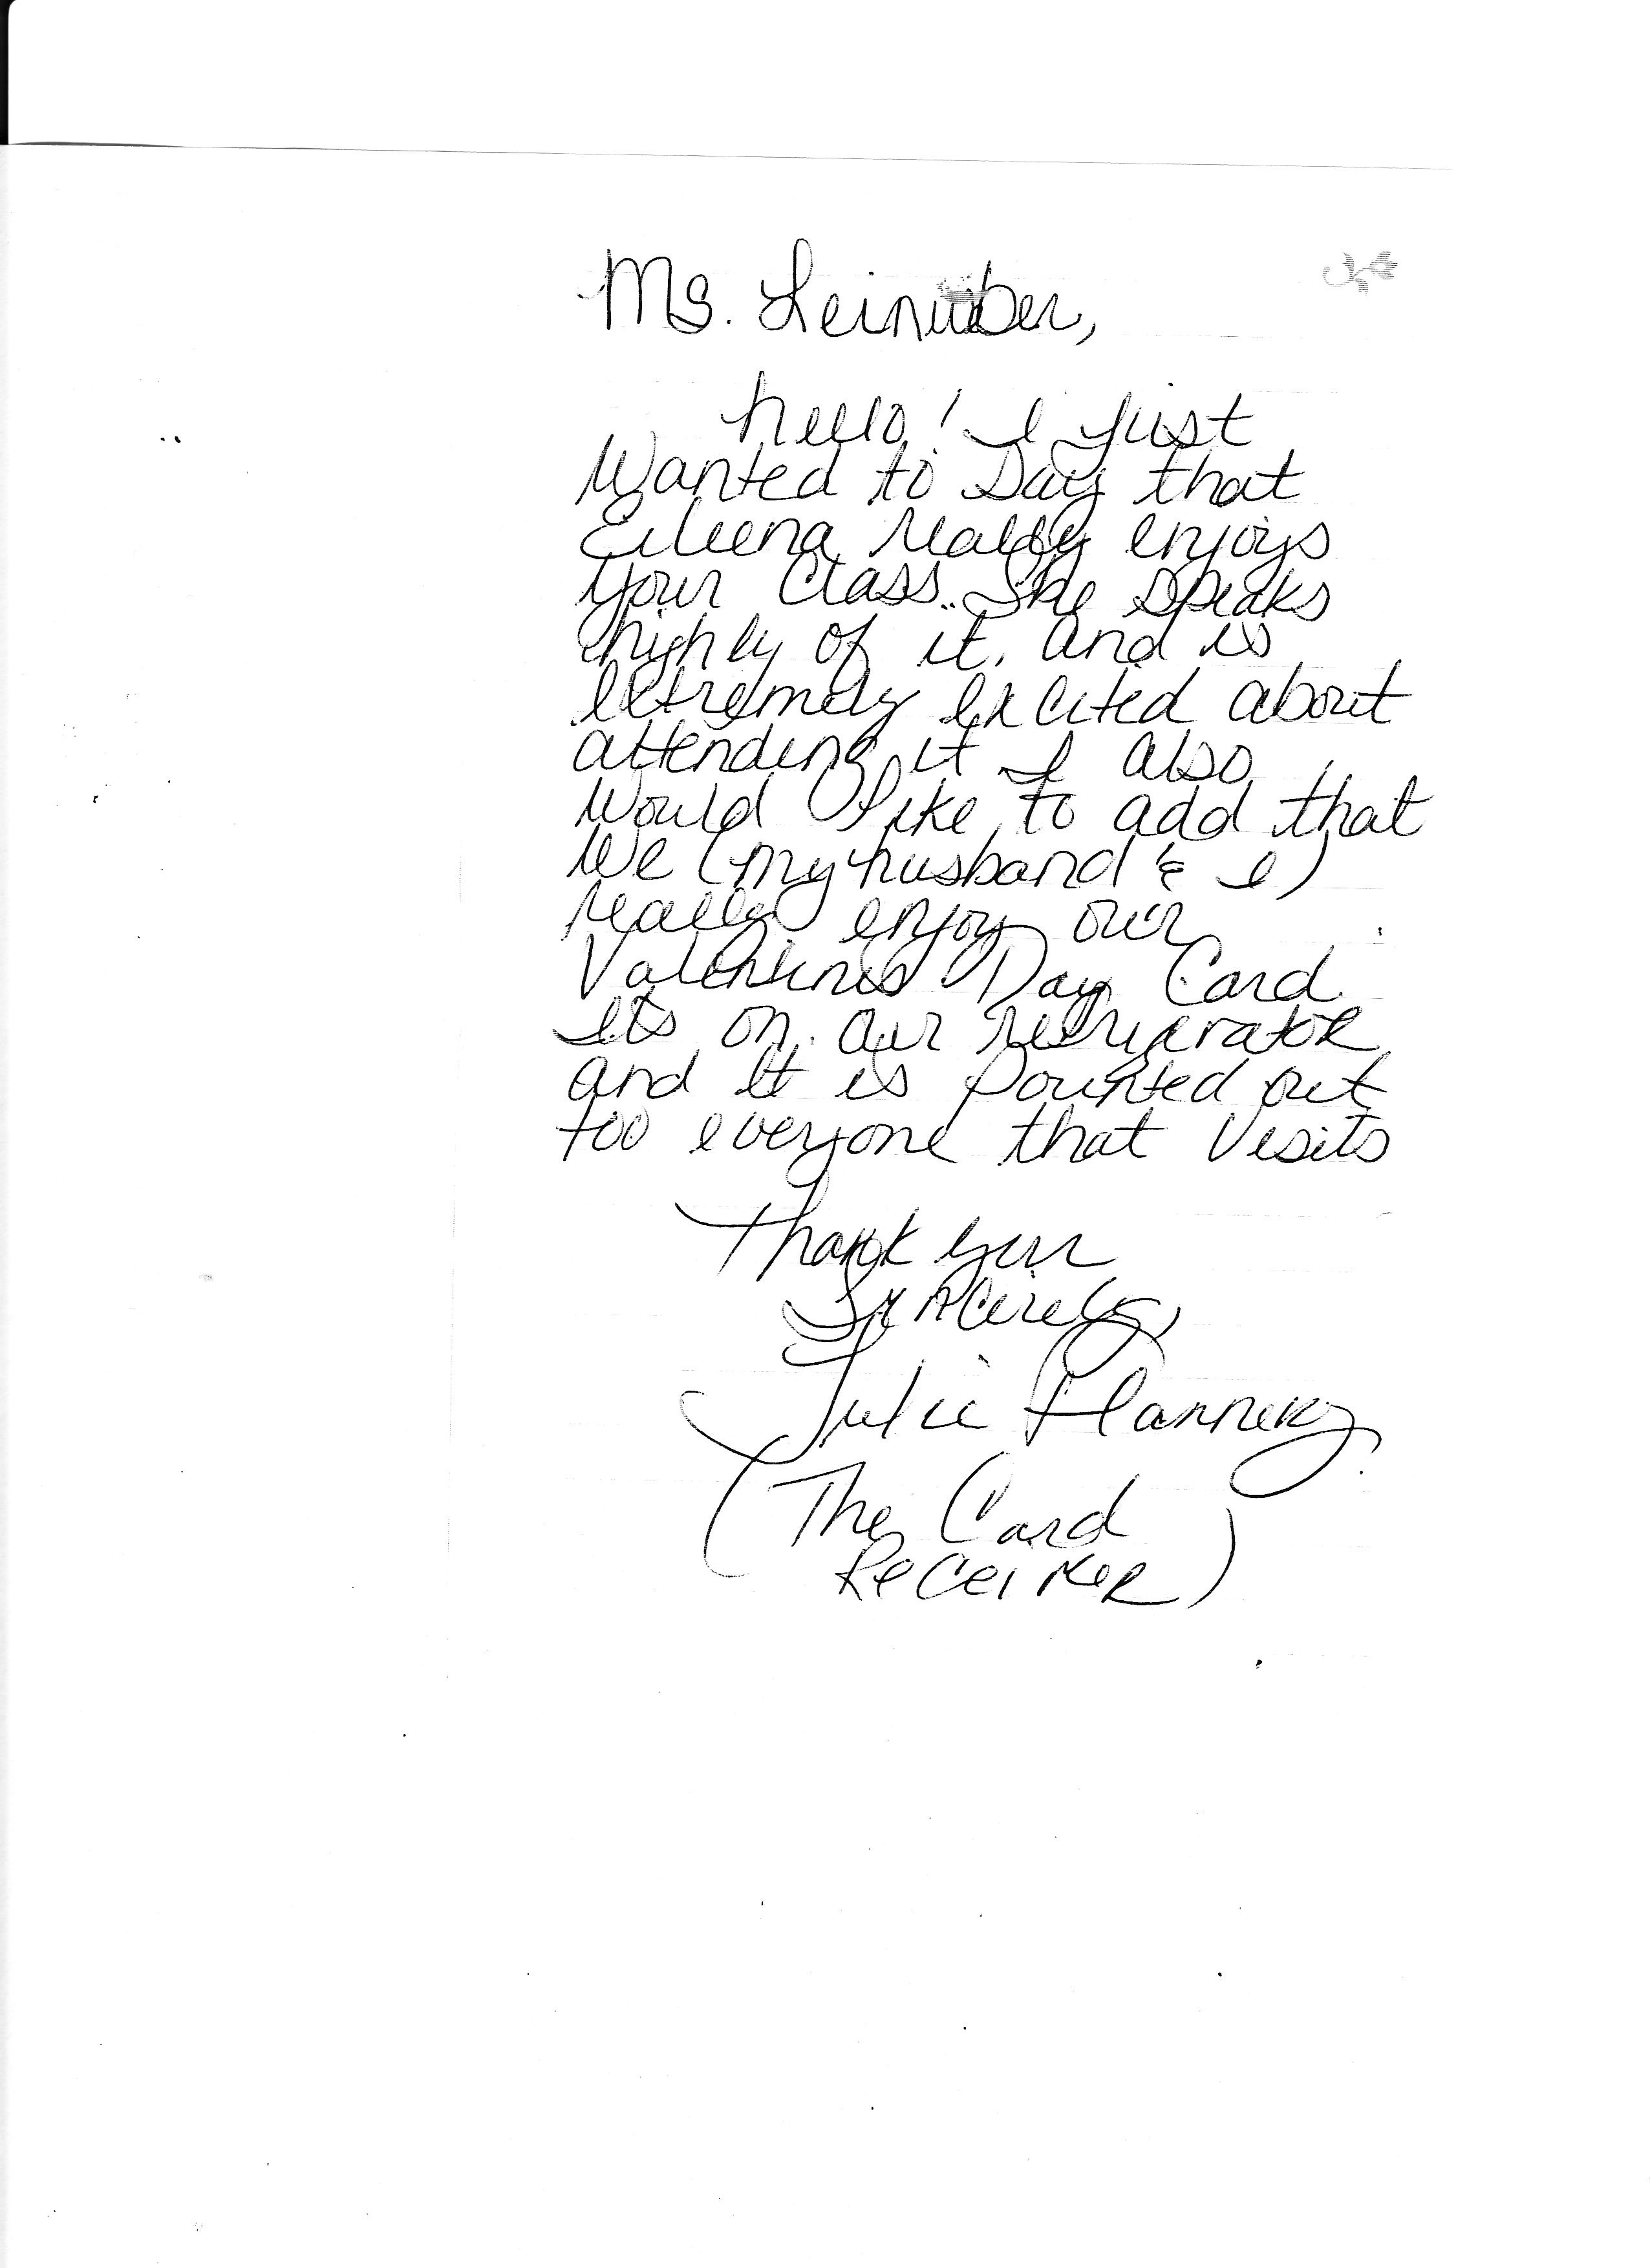 Ms. Leinweber,
hello! I just
wanted to say that
Eileena really enjoys
your class. She speaks
highly of it. and is
extremely excited about
attending it I also
would like to add that
we (my husband & I)
really enjoy our
Valentines Day Card.
Its on our refrigerator
and It is pointed out
too everyone that visits
Thank you
Sincerely,
Julie Flannery
(The Card
Receiver)